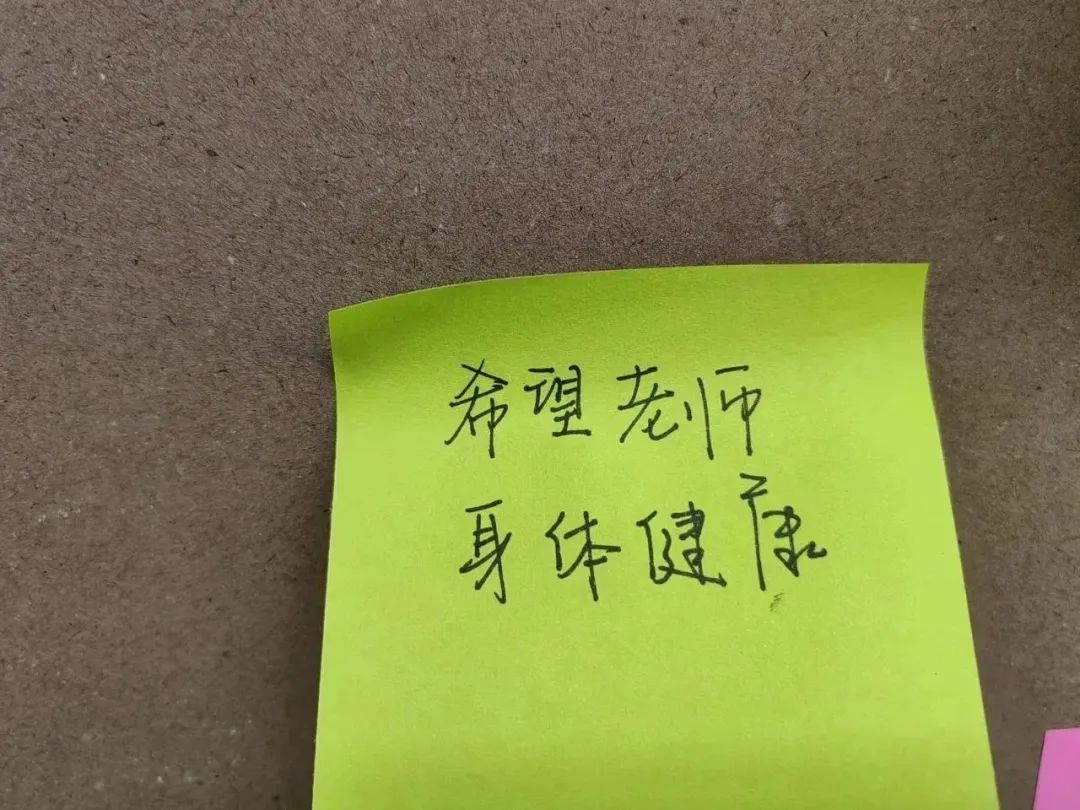 希望老师
身体健康